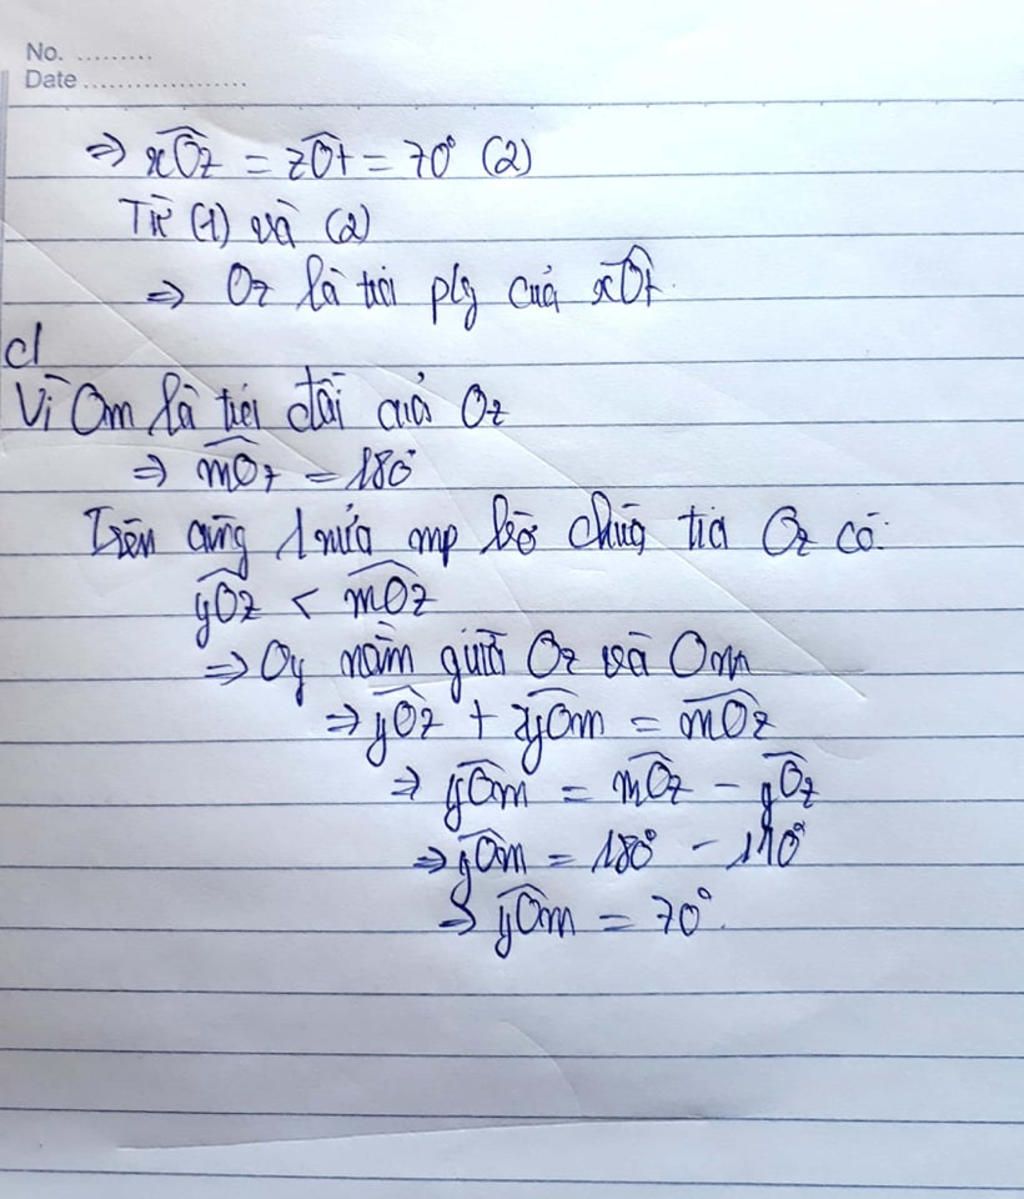 No. .........
Date ...................
⇒ xÔz = zÔt = 70° (2)
Từ (1) và (2)
⇒ Oz là tia p/g của xÔt.
c/
Vì Om là tia đối của Oz
⇒ mÔz = 180°
Trên cùng 1 nửa mp bờ chứa tia Oz có:
yÔz < mÔz
⇒ Oy nằm giữa Oz và Om
⇒ yÔz + yÔm = mÔz
⇒ yÔm = mÔz - yÔz
⇒ yÔm = 180° - 110°
⇒ yÔm = 70°.